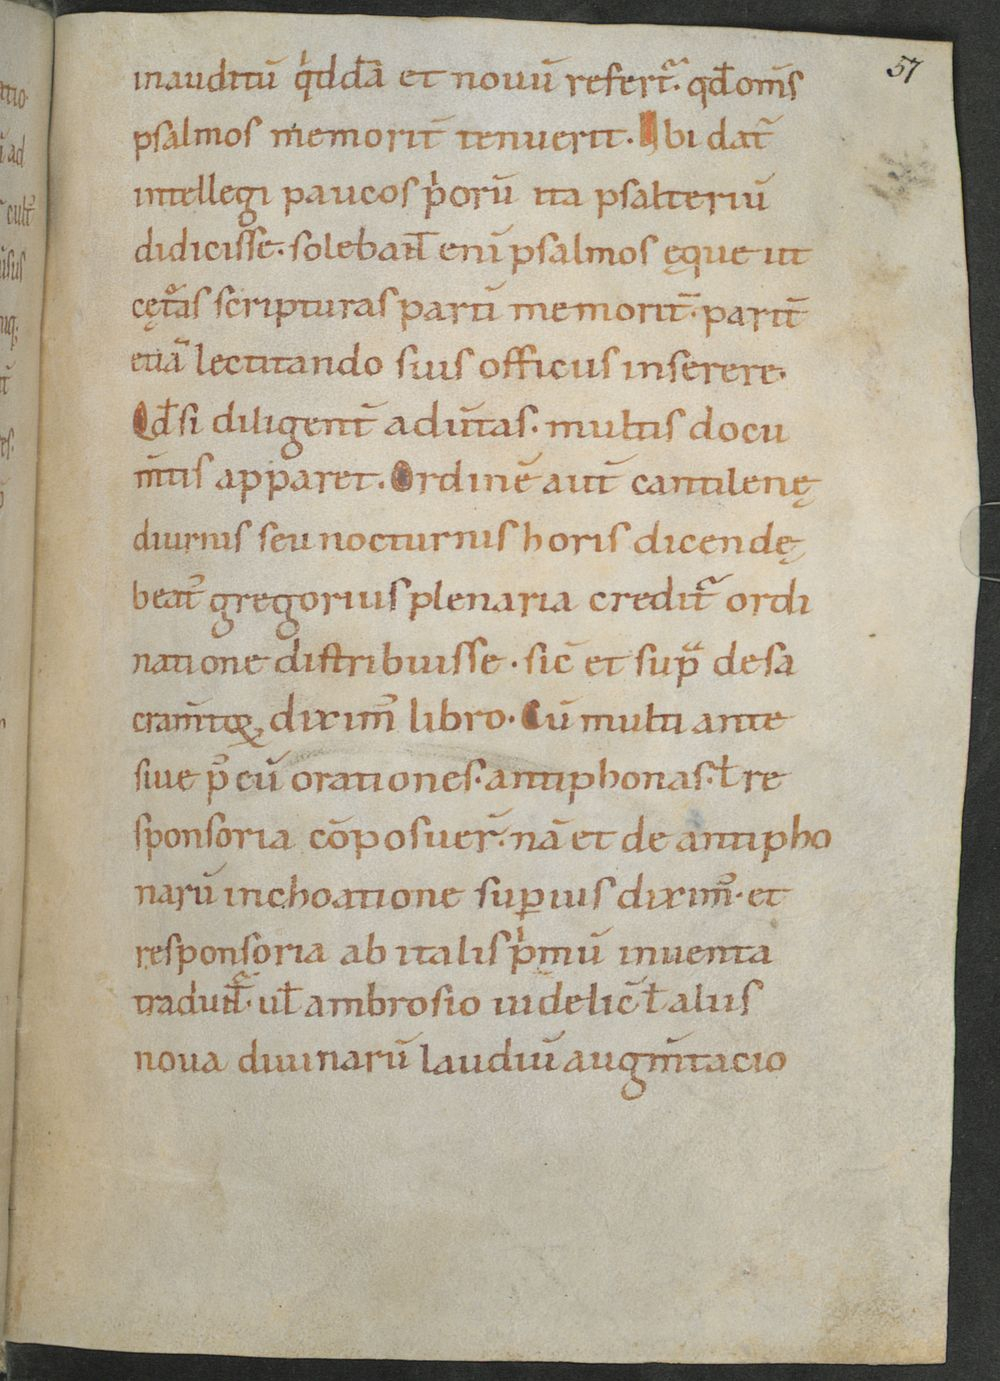 57
inauditū qͥdda̅ et nouū refert᷑. qd̄ om̄s
psalmos memorit̄ tenuerit. Ibi dat᷑
intellegi paucos pͥorū ita psalteriū
didicisse. solebant̄ enī psalmos ęque ut
cęt̾as scripturas partī memorit̄. partī
etiā lectitando suis officiis inserere.
Qd̄ si diligent̄ aduertas. multis docu
m̄tis apparet. Ordinē aut̄ cantilenę
diurnis seu nocturnis horis dicendę
beat᷒ gregorius plenaria credit᷑ ordi
natione distribuisse. sic̄ et supᷓ de sa
cram̄toꝝ dixim᷒ libro. Cū multi ante
siue p᷒ eū orationes. antiphonas. ł re
sponsoria cōposuer̄. nā et de antipho
narū inchoatione suꝑius dixim᷒. et
responsoria ab italis pͥmū inuenta
tradunt᷑. uł ambrosio uidelic̄ ł aliis
noua diuinarū laudiū augm̄tacio